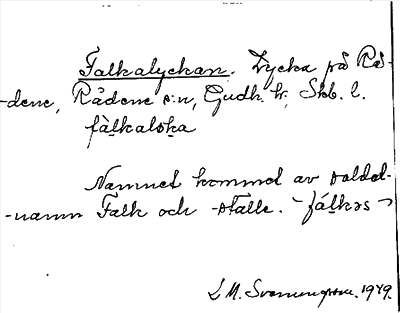 Falkalyckan. Lycka på Rå-
-dene, Rådene s:n, Gudh. hr, Skb. l.
fàlkaloka
Namnet kommet av soldat-
-namn Falk och -stalle. - fálkəs -
L M. Svenungsson. 1949.